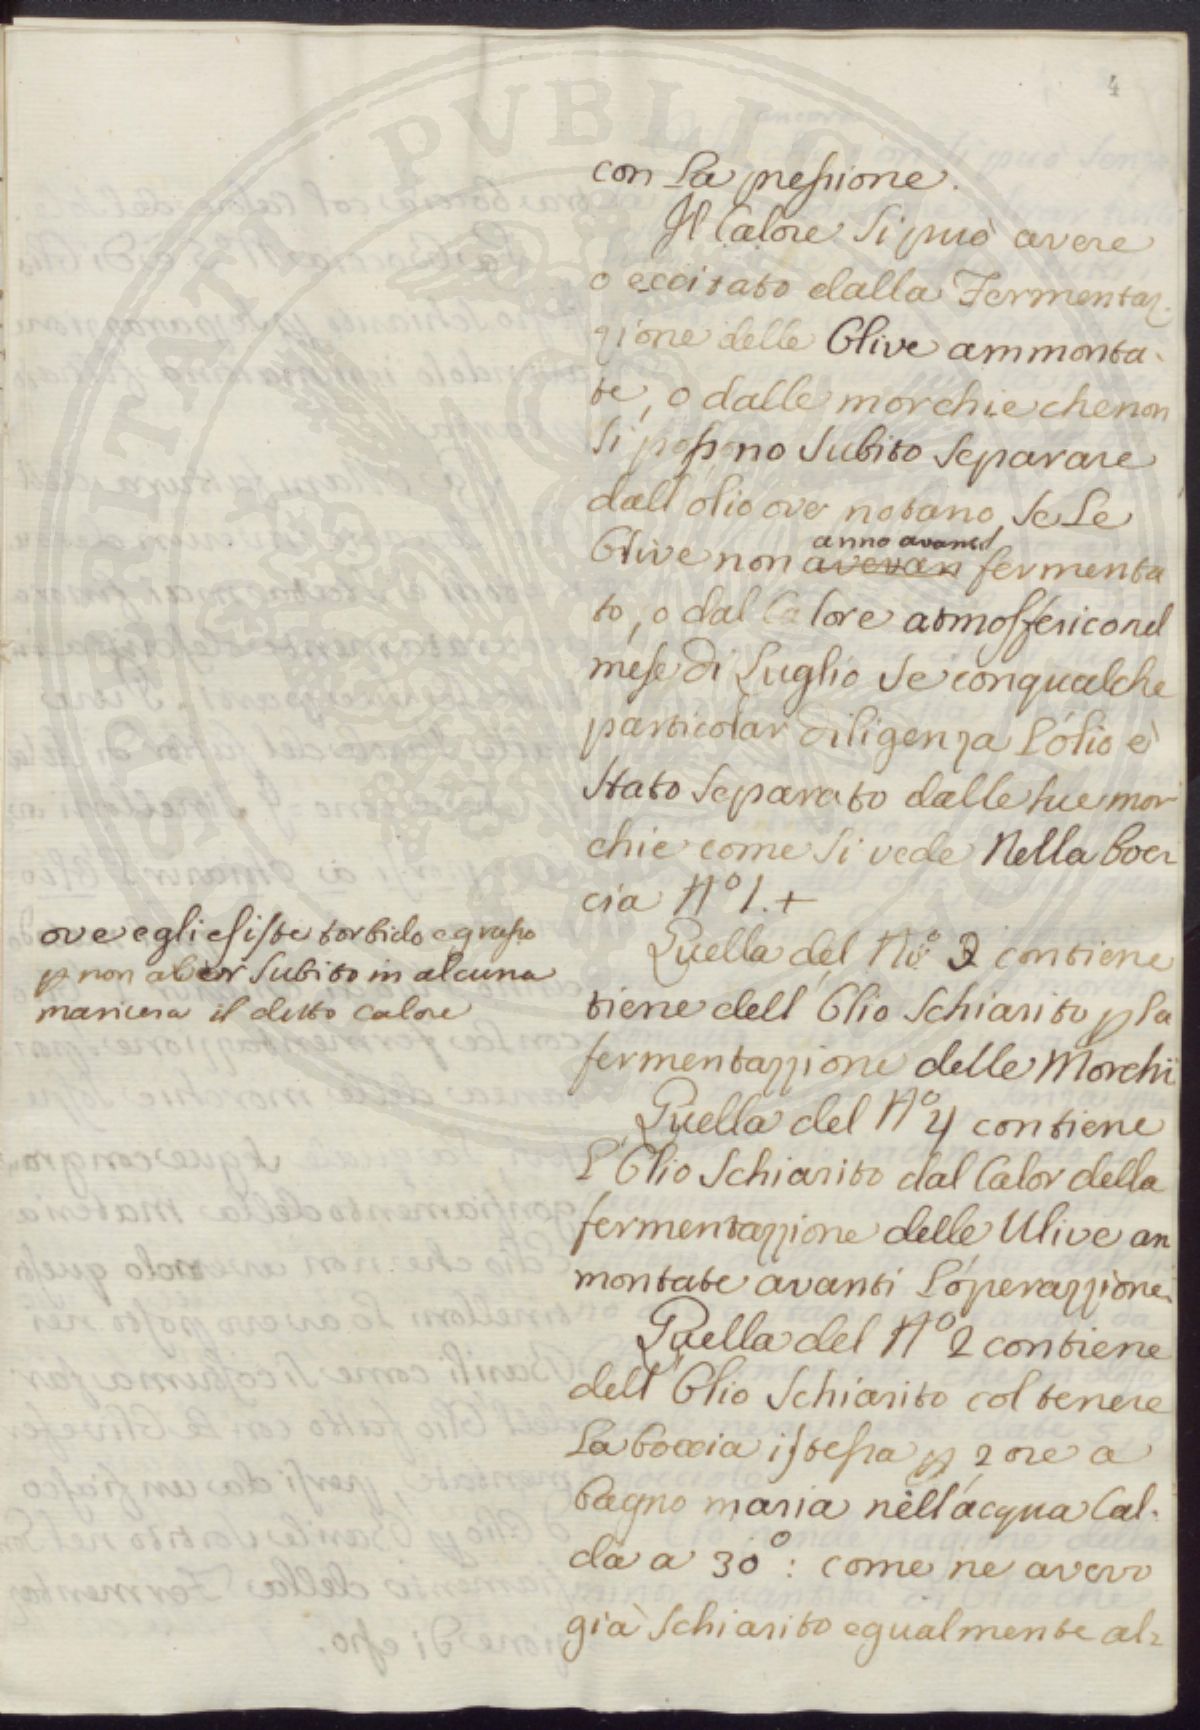 4
con la pressione.
Il Calore si può avere
o eccitato dalla Fermentaz-
zione delle Olive ammonta-
te, o dalle morchie che non
si possono subito separare
dall olio ove notano, se le
Olive non avevan fermenta
anno avanti
to, o dal Calore atmosferico nel
mese di Luglio se con qualche
particolar diligenza l'olio è
stato separato dalle sue mor
chie come si vede Nella boc-
cia N° 1. +
ove egli esiste torbido e grasso
p non aver subito in alcuna
maniera il detto calore
Quella del N° 3 contiene
tiene dell Olio Schiarito p la
fermentazzione delle Morchi
Quella del N° 4 contiene
l'Olio Schiarito dal Calor della
fermentazzione delle Ulive am
montate avanti l'operazzione.
Quella del N° 2 contiene
dell Olio Schiarito col tenere
la boccia istessa p 2 ore a
bagno maria nell'acqua Cal-
da a 30°: come ne avevo
già Schiarito egualmente al-
PUBLICA
PROSPERITATI